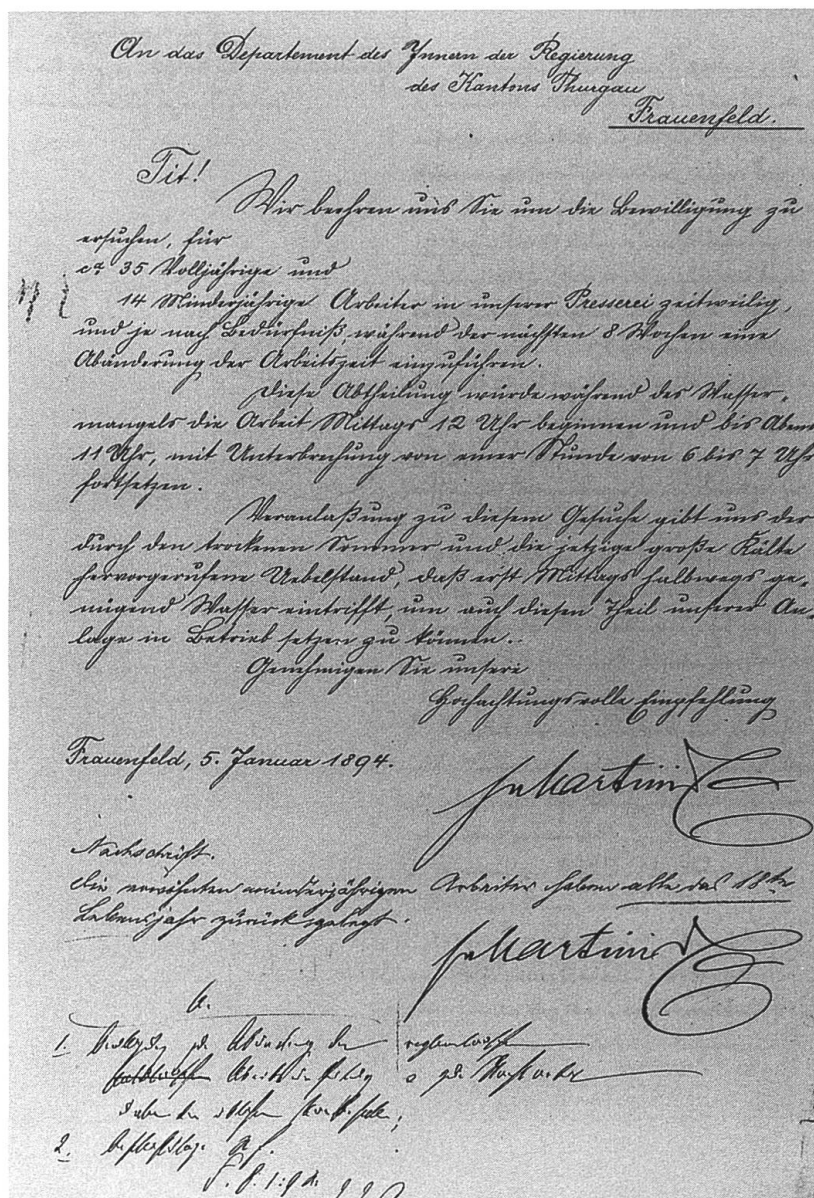 An das Departement des Innern der Regierung
des Kantons Thurgau
Frauenfeld.
Tit!
Wir beehren uns Sie um die Bewilligung zu
ersuchen, für
ca 35 Volljährige und
14 Minderjährige Arbeiter in unserer Presserei zeitweilig,
und je nach Bedürfniß, während der nächsten 8 Wochen eine
Abänderung der Arbeitszeit einzuführen.
Diese Abtheilung würde während des Wasser-
mangels die Arbeit Mittags 12 Uhr beginnen und bis Abend
11 Uhr, mit Unterbrechung von einer Stunde von 6 bis 7 Uhr
fortsetzen.
Veranlaßung zu diesem Gesuche gibt uns der
durch den trockenen Sommer und die jetzige große Kälte
hervorgerufene Uebelstand, daß erst Mittags halbwegs ge-
nügend Wasser eintrifft, um auch diesen Theil unserer An-
lage in Betrieb setzen zu können.
Genehmigen Sie unsere
Hochachtungsvolle Empfehlung
Frauenfeld, 5. Januar 1894.
Martini
Nachschrift.
Die erwähnten minderjährigen Arbeiter haben alle das 18te
Lebensjahr zurückgelegt.
Martini
1.
2.